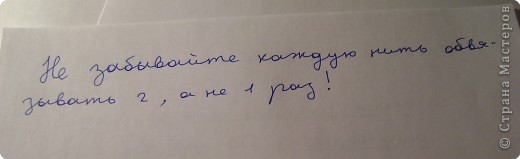 Не забывайте каждую нить обвя-
зывать 2, а не 1 раз!
© Страна Мастеров